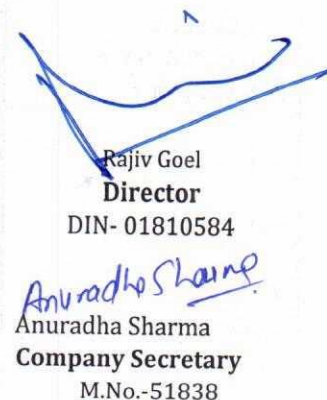 Rajiv Goel
Director
DIN- 01810584
Anuradha Sharma
Anuradha Sharma
Company Secretary
M.No.-51838